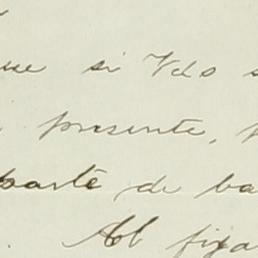 si Vds
presente,
parte de ba
Al fija